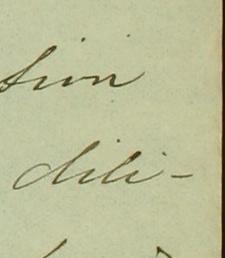 sion
dili-